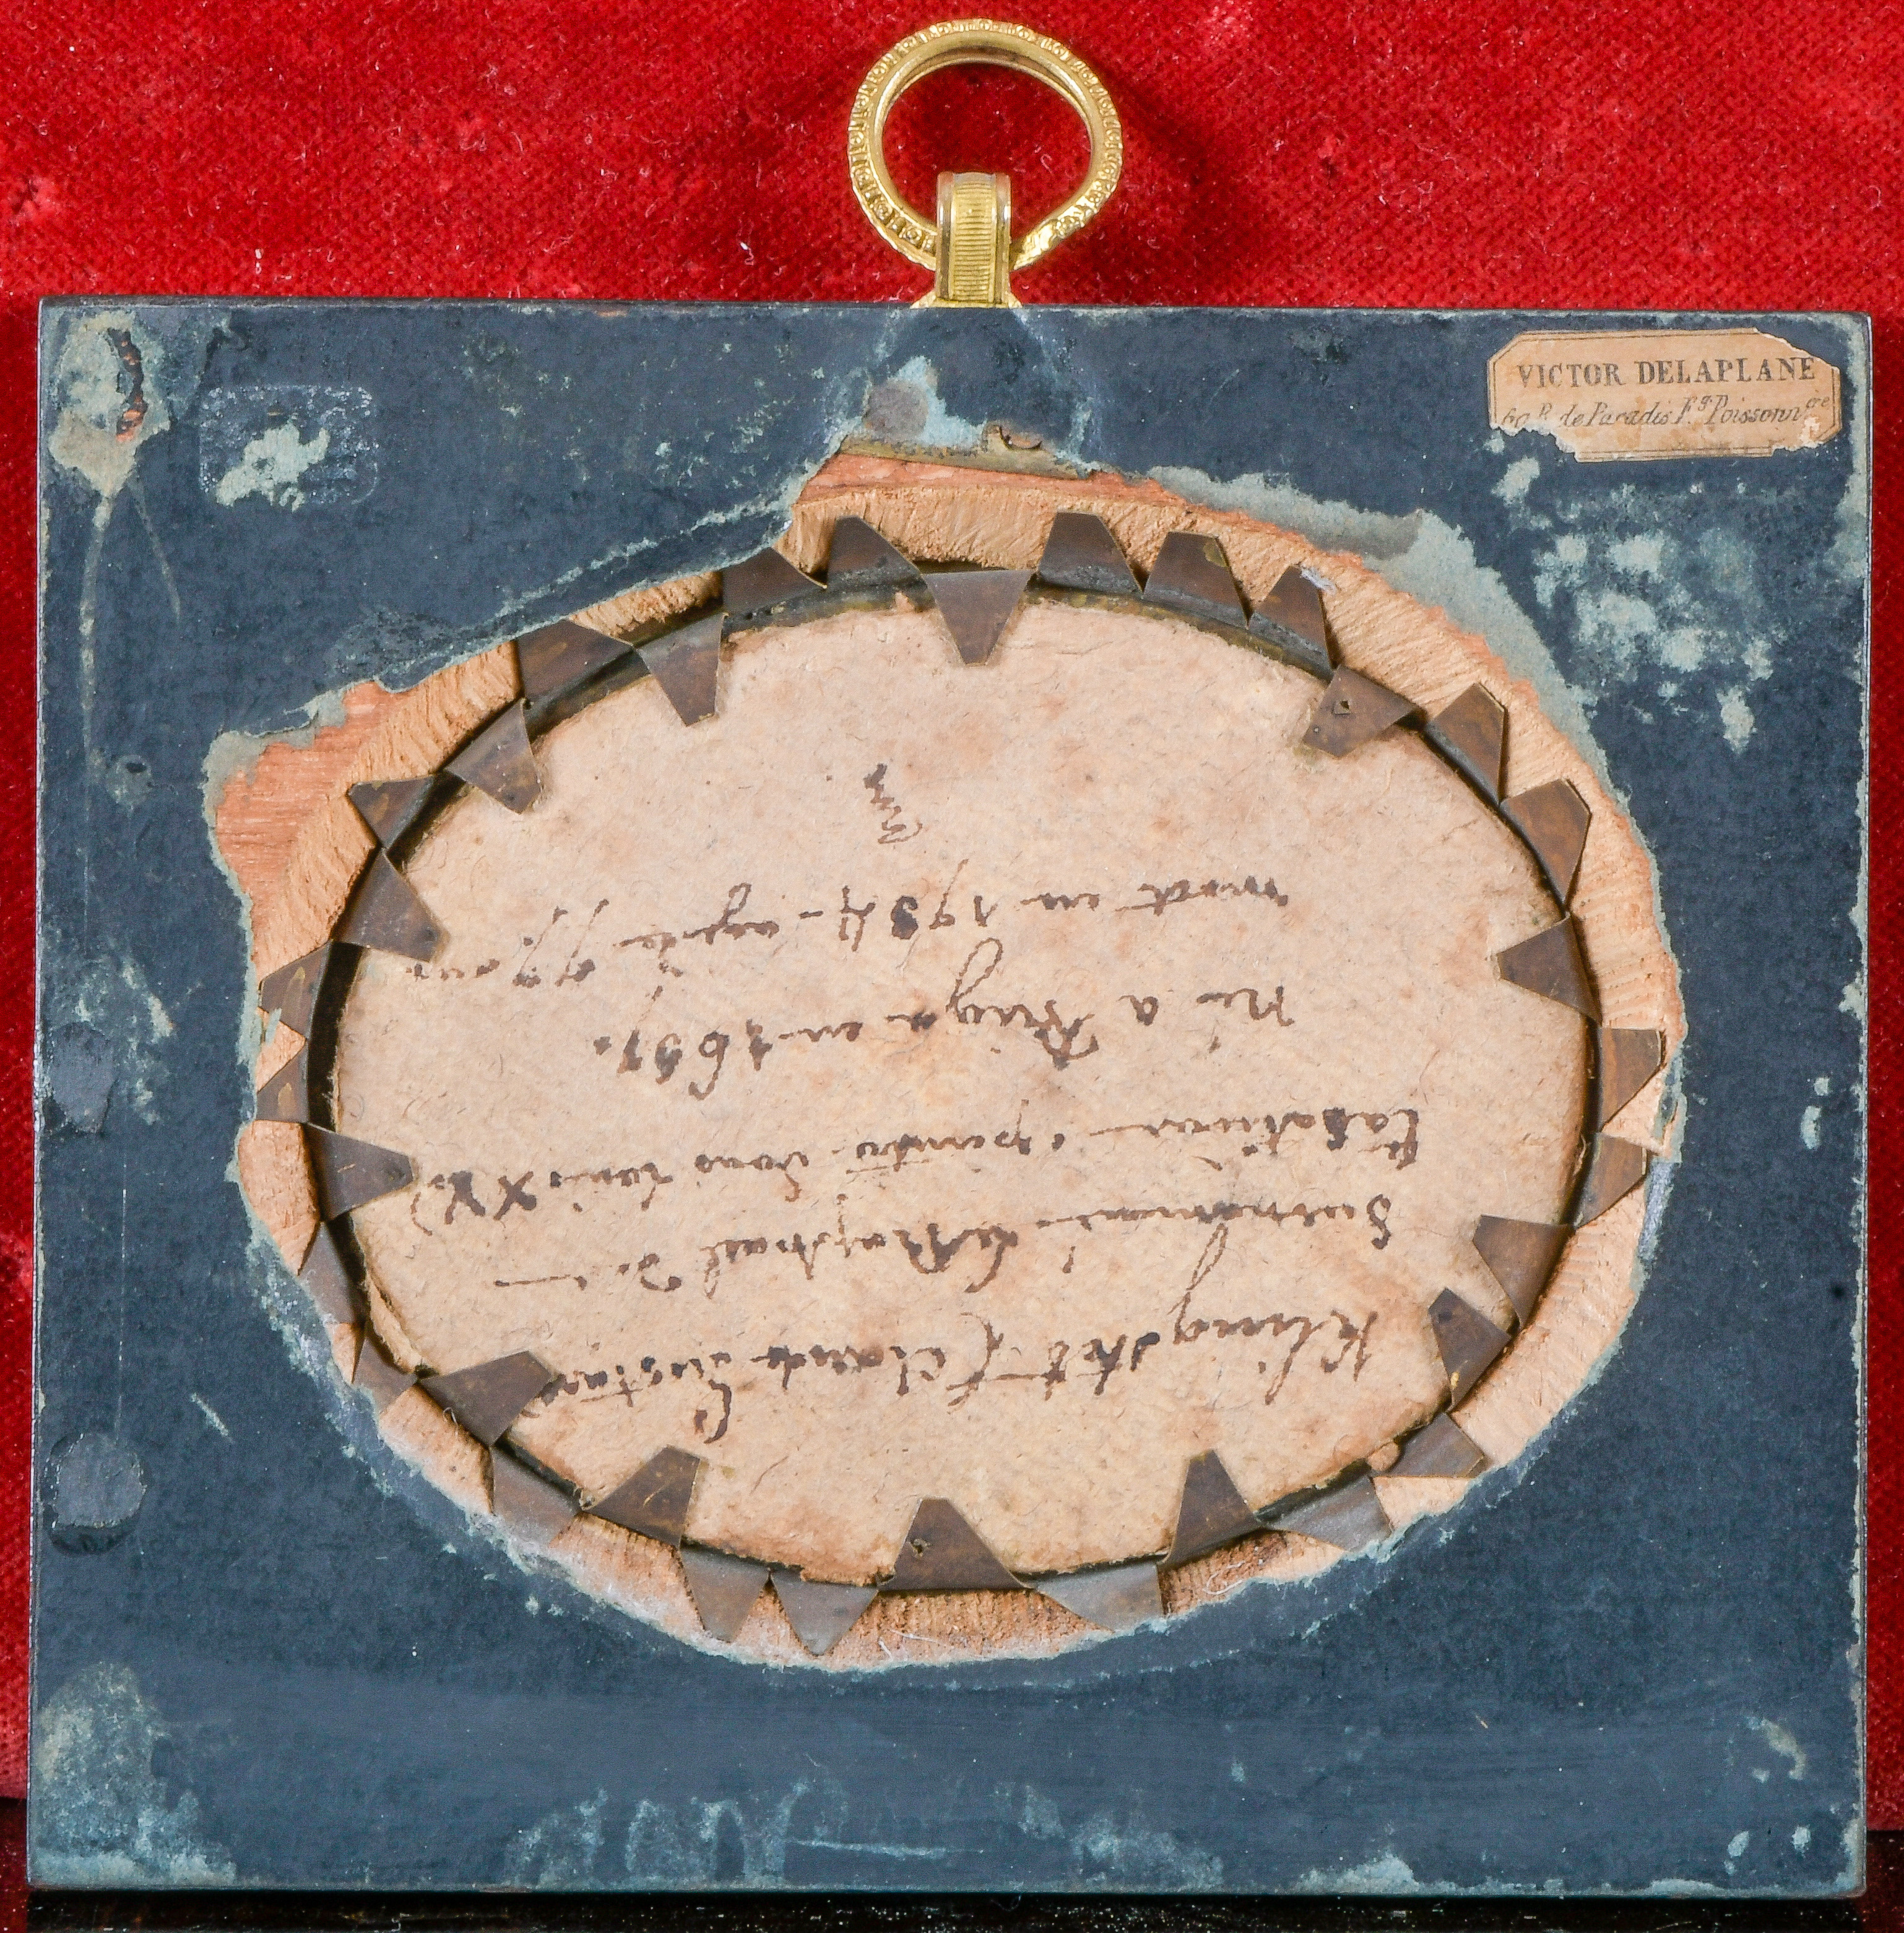 VICTOR DELAPLANE
60 R. de Paradis Fg. Poissonn.ère
Klingstet (Claude Gustave)
Surnommé le Raphael des
tabatieres, peintre sous Louis XV)
Né a Riga en 1657.
mort en 1734 - agé de 77 ans